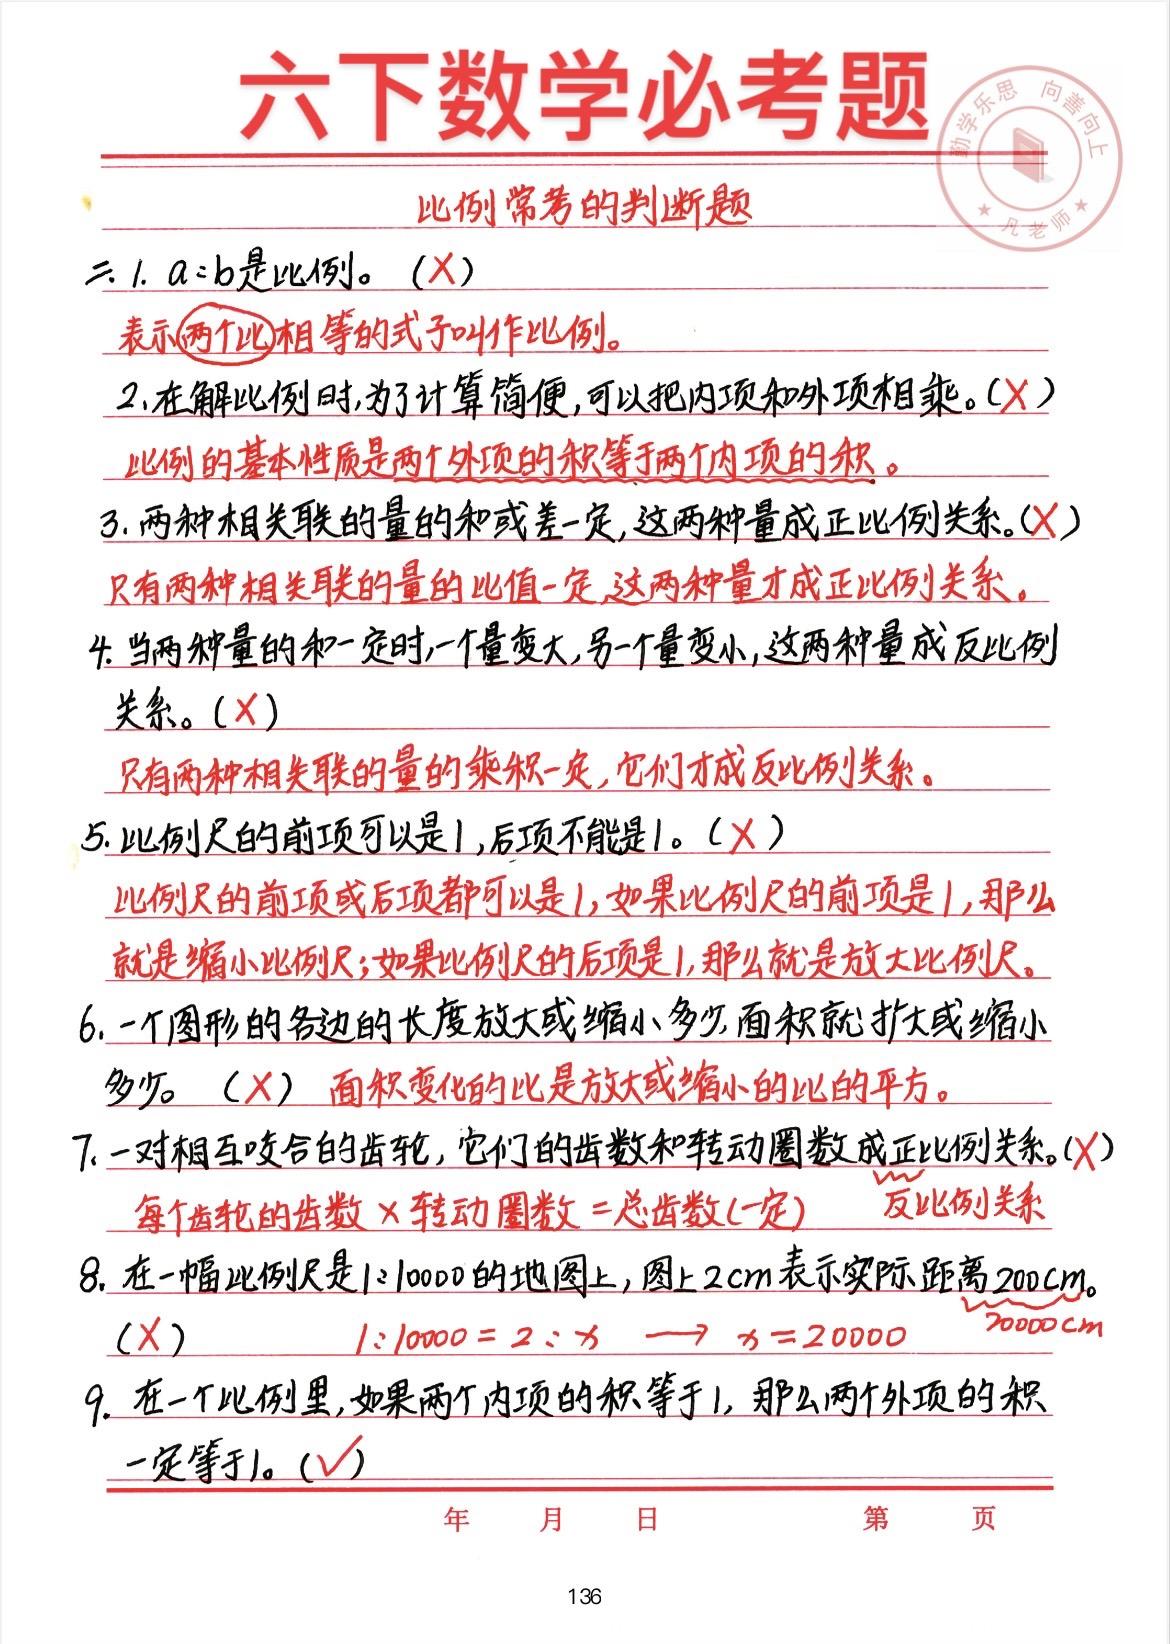 六下数学必考题
勤学乐思 向善向上
★ 凡老师 ★
比例常考的判断题
二.1. a:b是比例。(X)
表示两个比相等的式子叫作比例。
2.在解比例时,为了计算简便,可以把内项和外项相乘。(X)
比例的基本性质是两个外项的积等于两个内项的积。
3.两种相关联的量的和或差一定,这两种量成正比例关系。(X)
只有两种相关联的量的比值一定,这两种量才成正比例关系。
4.当两种量的和一定时,一个量变大,另一个量变小,这两种量成反比例
关系。(X)
只有两种相关联的量的乘积一定,它们才成反比例关系。
5.比例尺的前项可以是1,后项不能是1。(X)
比例尺的前项或后项都可以是1,如果比例尺的前项是1,那么
就是缩小比例尺;如果比例尺的后项是1,那么就是放大比例尺。
6.一个图形的各边的长度放大或缩小多少,面积就扩大或缩小
多少。(X) 面积变化的比是放大或缩小的比的平方。
7.一对相互咬合的齿轮,它们的齿数和转动圈数成正比例关系。(X)
每个齿轮的齿数×转动圈数=总齿数(一定) 反比例关系
8.在一幅比例尺是1:10000的地图上,图上2cm表示实际距离200cm。
(X) 1:10000=2:x → x=20000 20000cm
9.在一个比例里,如果两个内项的积等于1,那么两个外项的积
一定等于1。(✓)
年 月 日 第 页
136